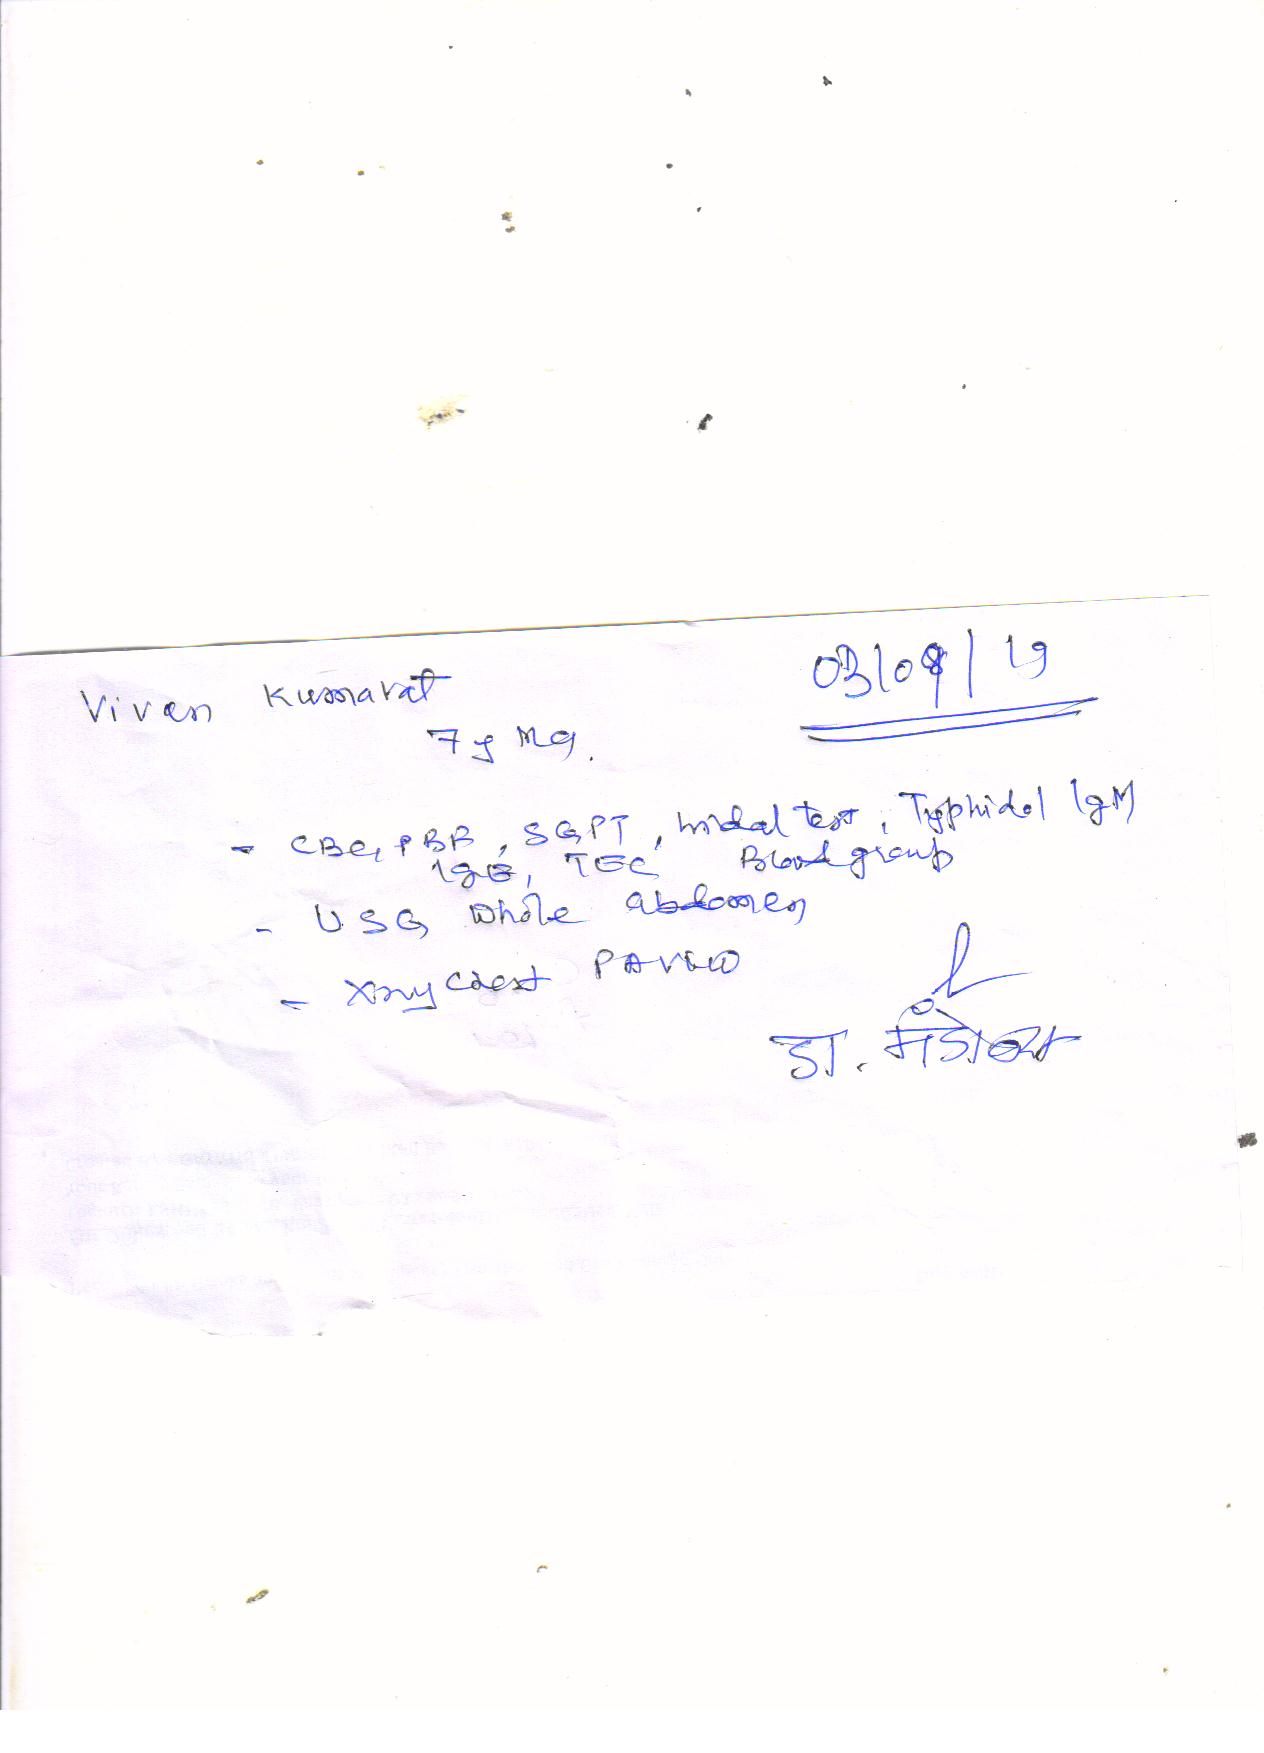 03/09/19
Viven Kumarat
7 y
- CBC, PBF, SGPT, widal test, Typhidol IgM
IgE, TEC Blood group
- USG Whole abdomen
- Xray Chest PA view
डा.